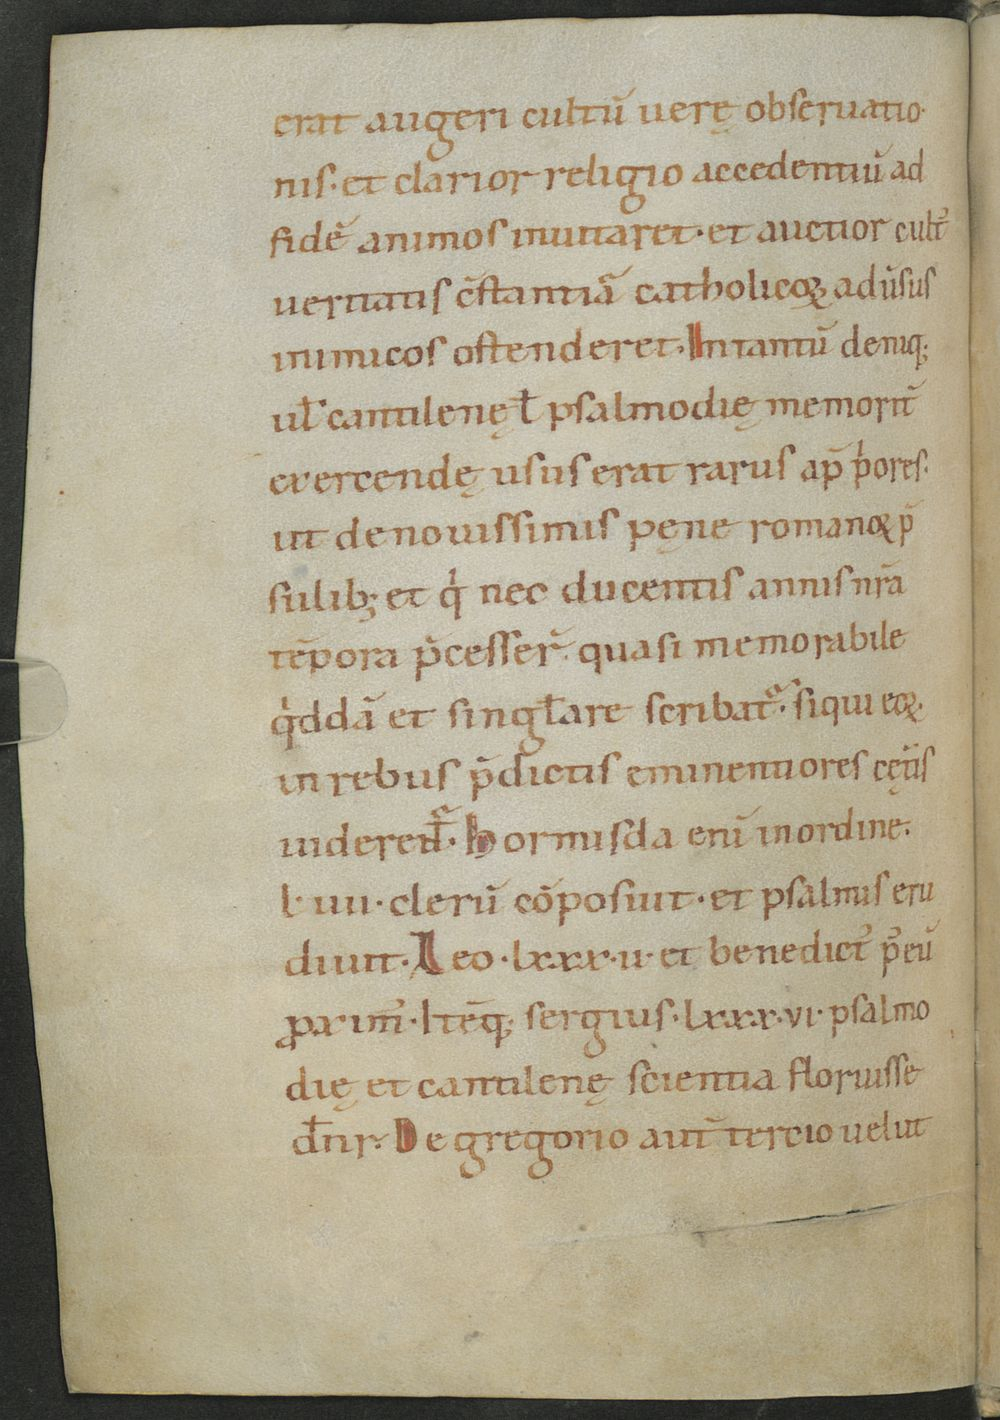 erat augeri cultū uerę obseruatio
nis· et clarior religio accedentiū ad
fidē animos inuitaret· et auctior cult᷒
ueritatis c̄stantiā catholicoꝝ aduˉsus
inimicos ostenderet· Intantū deniq;
uł cantilenę ł psalmodię memorit̄
exercendę usus erat rarus ap̄ pͥores·
ut de nouissimis pęne romanoꝝ p̄
sulib; et qͥ nec ducentis annis nr̄a
tēpora p̄cesser̄· quasi memorabile
qͥddā et singłare scribat᷑· siqui eoꝝ
in rebus p̄dictis eminentiores cęt̄is
uiderent᷑· Hormisda enī in ordine·
l· iiii· clerū cōposuit· et psalmis eru
diuit· Leo· lxxx·ii· et benedict᷒ p᷒ eū
ꝓxim᷒· Itēq; sergius· lxxx·vi· psalmo
dię et cantilenę scientia floruisse
dn̄r· De gregorio aut̄ tercio uelut